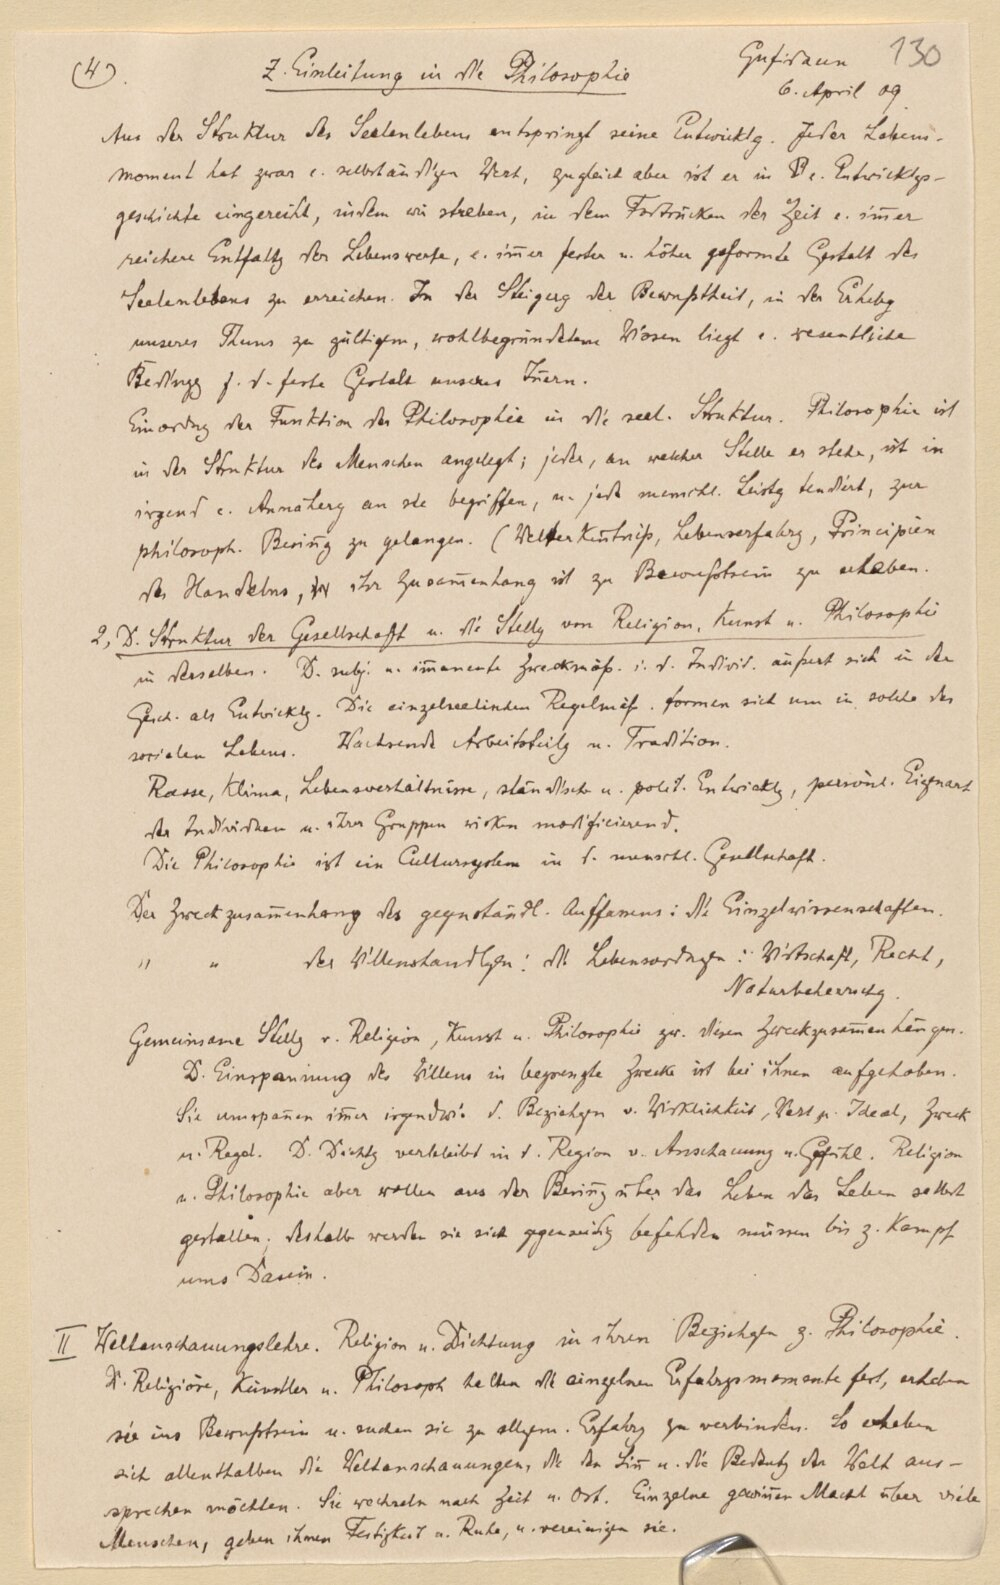 (4).
Z. Einleitung in die Philosophie
Gufidaun
130
6. April 09
Aus der Struktur des Seelenlebens entspringt seine Entwicklg. Jeder Lebens-
moment hat zwar e. selbständigen Wert, zugleich aber ist er in e. Entwicklgs-
geschichte eingereiht, indem wir streben, in dem Fortrücken der Zeit e. im̄er
reichere Entfaltg der Lebenswerte, e. im̄er fester u. höher geformte Gestalt des
Seelenlebens zu erreichen. In der Steigerg der Bewußtheit, in der Erhebg
unseres Thuns zu gültigem, wohlbegründetem Wissen liegt e. wesentliche
Bedingg f. d. feste Gestalt unseres In̄ern.
Einordng der Funktion der Philosophie in die seel. Struktur. Philosophie ist
in der Struktur des Menschen angelegt; jeder, an welcher Stelle er stehe, ist in
irgend e. Annäherg an sie begriffen, u. jede menschl. Leistg tendiert, zur
philosoph. Besin̄g zu gelangen. (Welterken̄tniß, Lebenserfahrg, Principien
des Handelns, ihr Zusam̄enhang ist zu Bewußtsein zu erheben.
2, D. Struktur der Gesellschaft u. die Stellg von Religion, Kunst u. Philosophie
in derselben. D. subj. u. im̄anente Zweckmäß. i. d. Individ. äußert sich in der
Gesch. als Entwicklg. Die einzelseelischen Regelmäß. formen sich um in solche des
socialen Lebens. Wachsende Arbeitsteilg u. Tradition.
Rasse, Klima, Lebensverhältnisse, ständische u. polit. Entwicklg, persönl. Eigenart
der Individuen u. ihrer Gruppen wirken modificierend.
Die Philosophie ist ein Cultursystem in d. menschl. Gesellschaft.
Der Zweckzusam̄enhang des gegenständl. Auffassens: die Einzelwissenschaften.
" " der Willenshandlgen: die Lebensordngen: Wirtschaft, Recht,
Naturbeherrschg.
Gemeinsame Stellg v. Religion, Kunst u. Philosophie zw. diesen Zweckzusam̄enhängen.
D. Einspannung des Willens in begrenzte Zwecke ist bei ihnen aufgehoben.
Sie umspan̄en im̄er irgendwie d. Beziehgen v. Wirklichkeit, Wert u. Ideal, Zweck
u. Regel. D. Dichtg verbleibt in d. Region v. Anschauung u. Gefühl. Religion
u. Philosophie aber wollen aus der Besin̄g über das Leben das Leben selbst
gestalten; deshalb werden sie sich gegenseitig befehden müssen bis z. Kampf
ums Dasein.
II Weltanschauungslehre. Religion u. Dichtung in ihren Beziehgen z. Philosophie.
D. Religiöse, Künstler u. Philosoph halten die einzelnen Erfahrgsmomente fest, erheben
sie ins Bewußtsein u. suchen sie zu allgem. Erfahrg zu verbinden. So erheben
sich allenthalben die Weltanschauungen, die den Sin̄ u. die Bedeutg der Welt aus-
sprechen möchten. Sie wechseln nach Zeit u. Ort. Einzelne gewin̄en Macht über viele
Menschen, geben ihnen Festigkeit u. Ruhe, u. vereinigen sie.